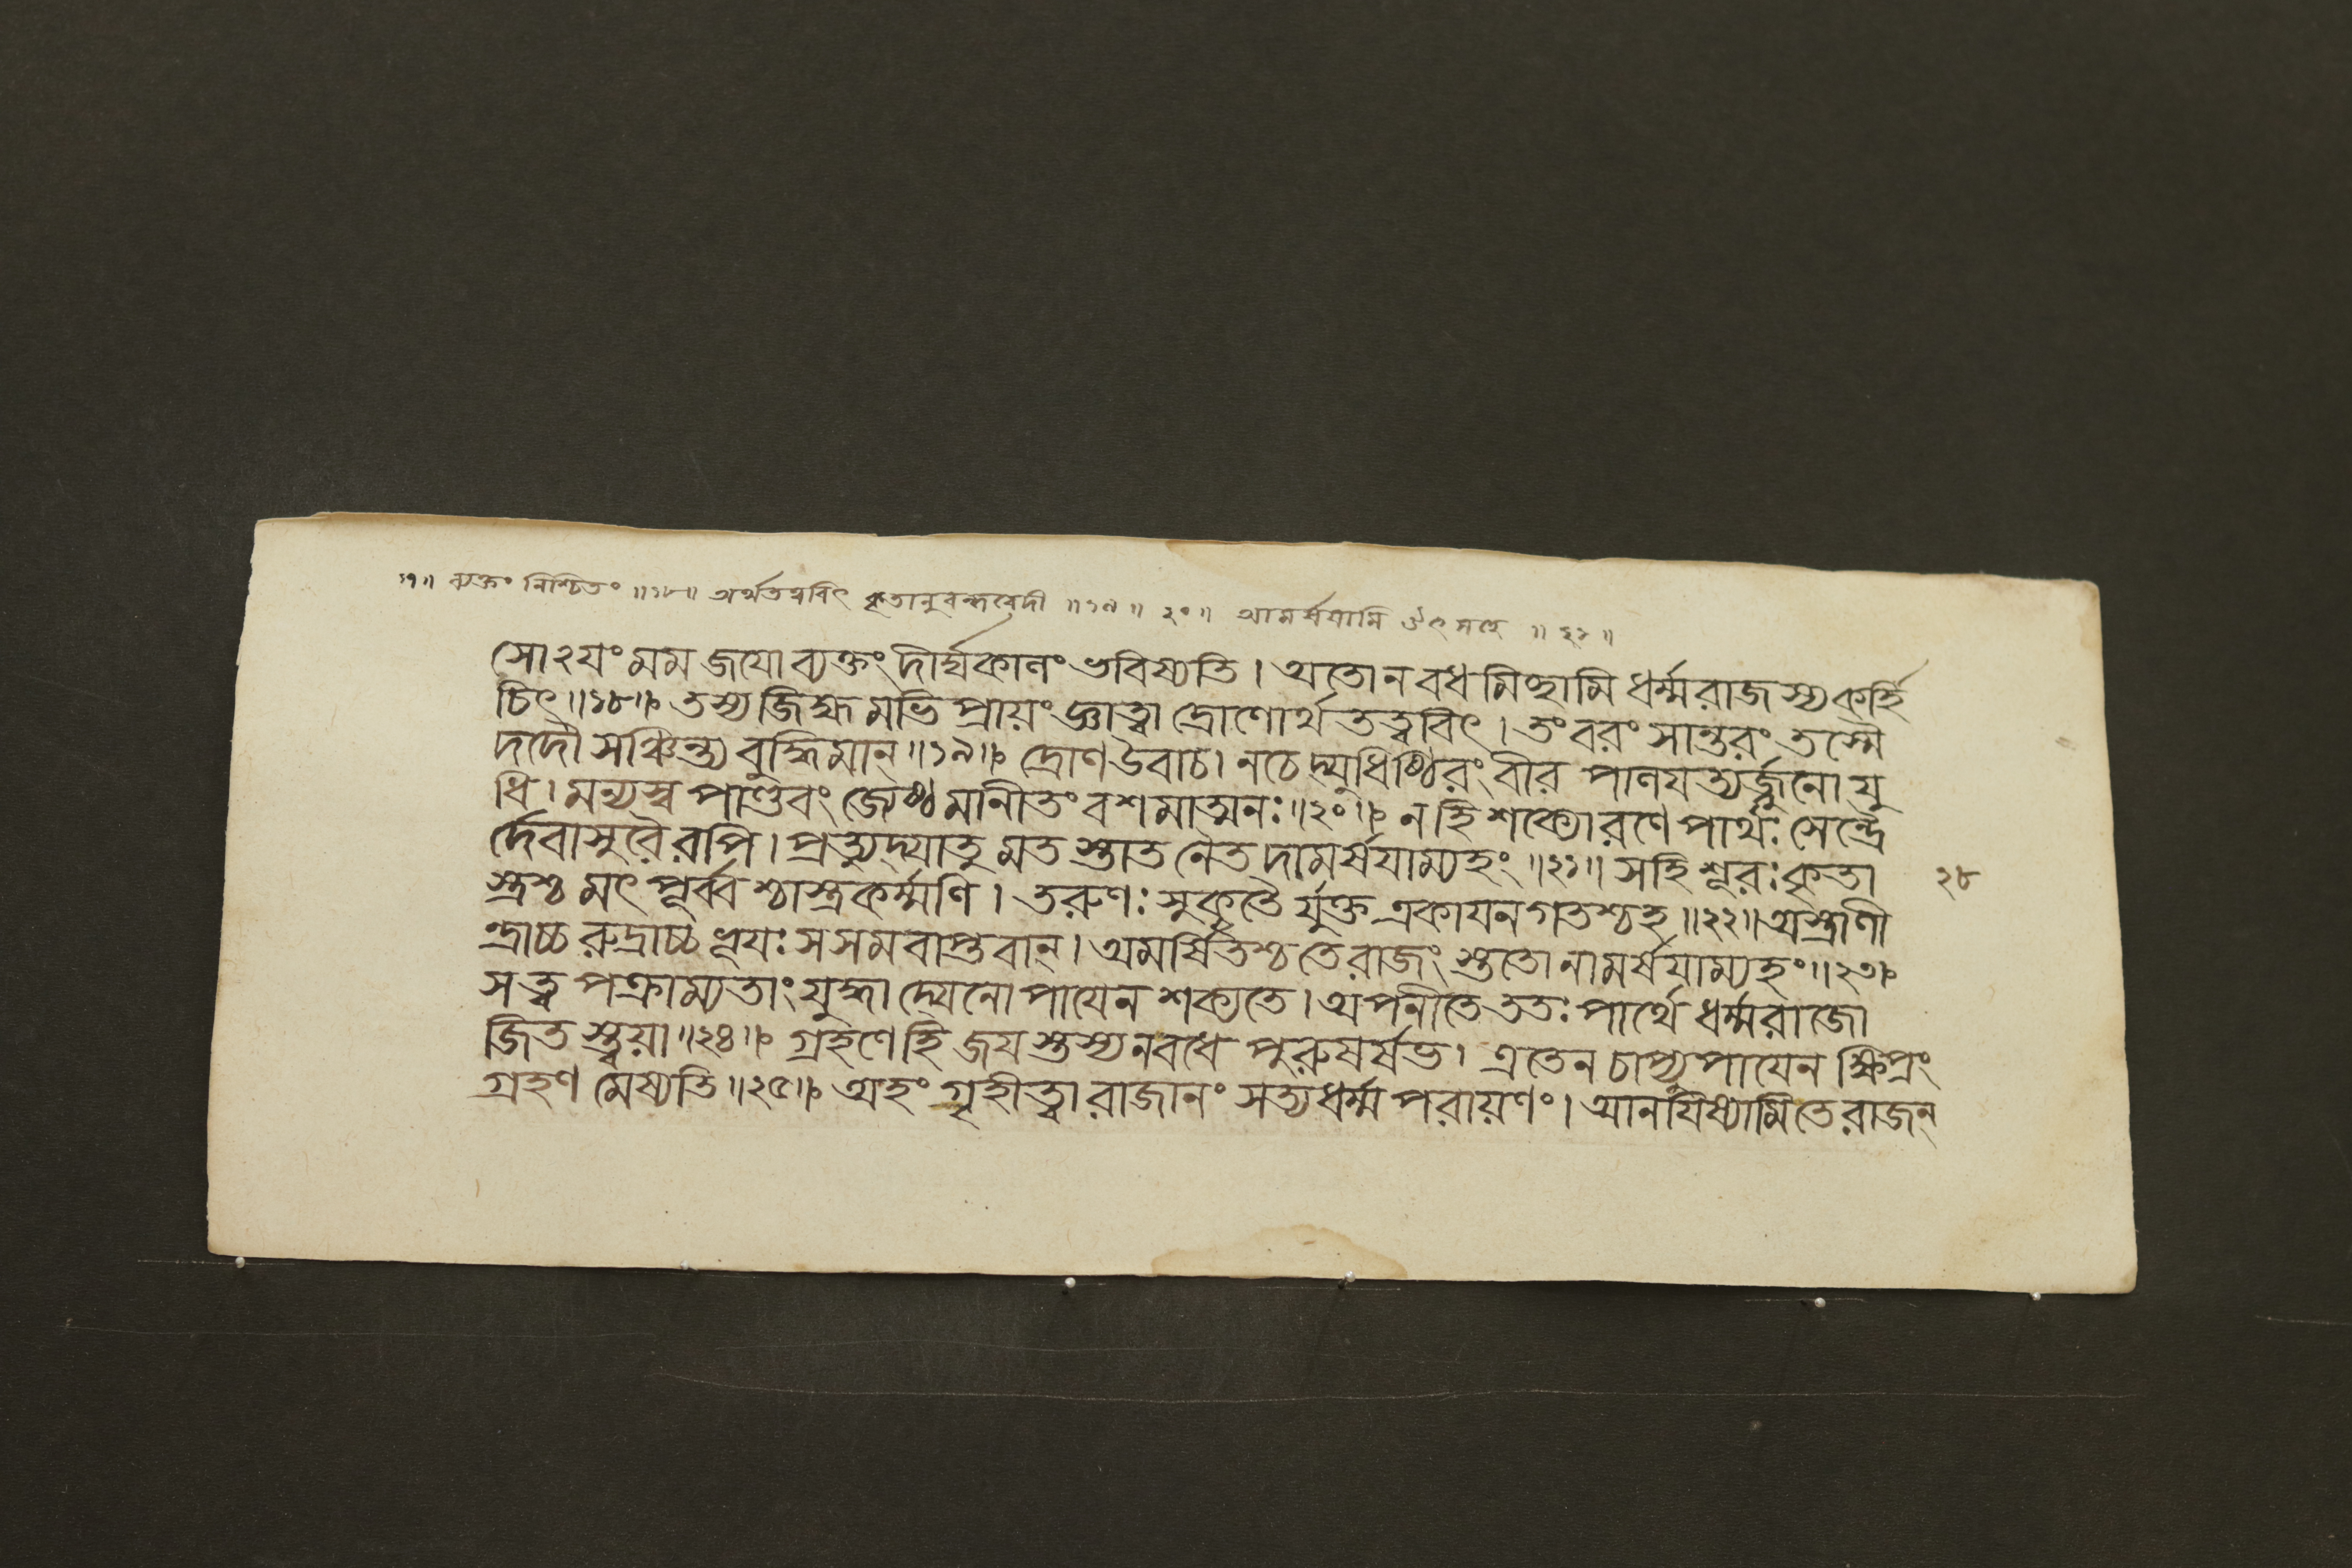 ১৭॥ ব্যক্তং নিশ্চিতং ॥১৮॥ অর্থতত্ত্ববিৎ কৃতানুবন্ধবেদী ॥১৯॥ ২০॥ আমর্ষযামি উৎসহে ॥২১॥
সোঽযং মম জযো ব্যক্তং দীর্ঘকালং ভবিষ্যতি। অতো ন বধমিচ্ছামি ধর্ম্মরাজস্য কর্হি
চিৎ॥১৮॥ তস্য জিহ্মমভিপ্রায়ং জ্ঞাত্বা দ্রোণোর্থতত্ত্ববিৎ। তং বরং সান্তরং তস্মৈ
দদৌ সঞ্চিন্ত্য বুদ্ধিমান্॥১৯॥ দ্রোণ উবাচ। ন চেদ্যুধিষ্ঠিরং বীর পালযত্যর্জ্জুনো যু
ধি। মন্যস্ব পাণ্ডবং জ্যেষ্ঠমানীতং বশমাত্মনঃ॥২০॥ নহি শক্যো রণে পার্থঃ সেন্দ্রৈ
র্দেবাসুরৈরপি। প্রত্যুদ্যাতুমতস্তাত নৈতদামর্ষযাম্যহং॥২১॥ স হি শূরঃ কৃতা
স্ত্রশ্চ মৎপূর্ব্বশ্চাস্ত্রকর্ম্মণি। তরুণঃ সুকৃতৈর্যুক্ত একাযনগতশ্চ হ॥২২॥ অস্ত্রাণী
ন্দ্রাচ্চ রুদ্রাচ্চ ভূযঃ স সমবাপ্তবান্। অমর্ষিতশ্চ তে রাজংস্তুতো নামর্ষযাম্যহং॥২৩॥
স ত্বপক্রাম্যতাং যুদ্ধাদ্যেনোপাযেন শক্যতে। অপনীতে ততঃ পার্থে ধর্ম্মরাজো
জিতস্ত্বয়া॥২৪॥ গ্রহণে হি জযস্তস্য ন বধে পুরুষর্ষভ। এতেন চাপ্যুপাযেন ক্ষিপ্রং
গ্রহণমেষ্যতি॥২৫॥ অহং গৃহীত্বা রাজানং সত্যধর্ম্মপরায়ণং। আনযিষ্যামি তে রাজন্
২৮